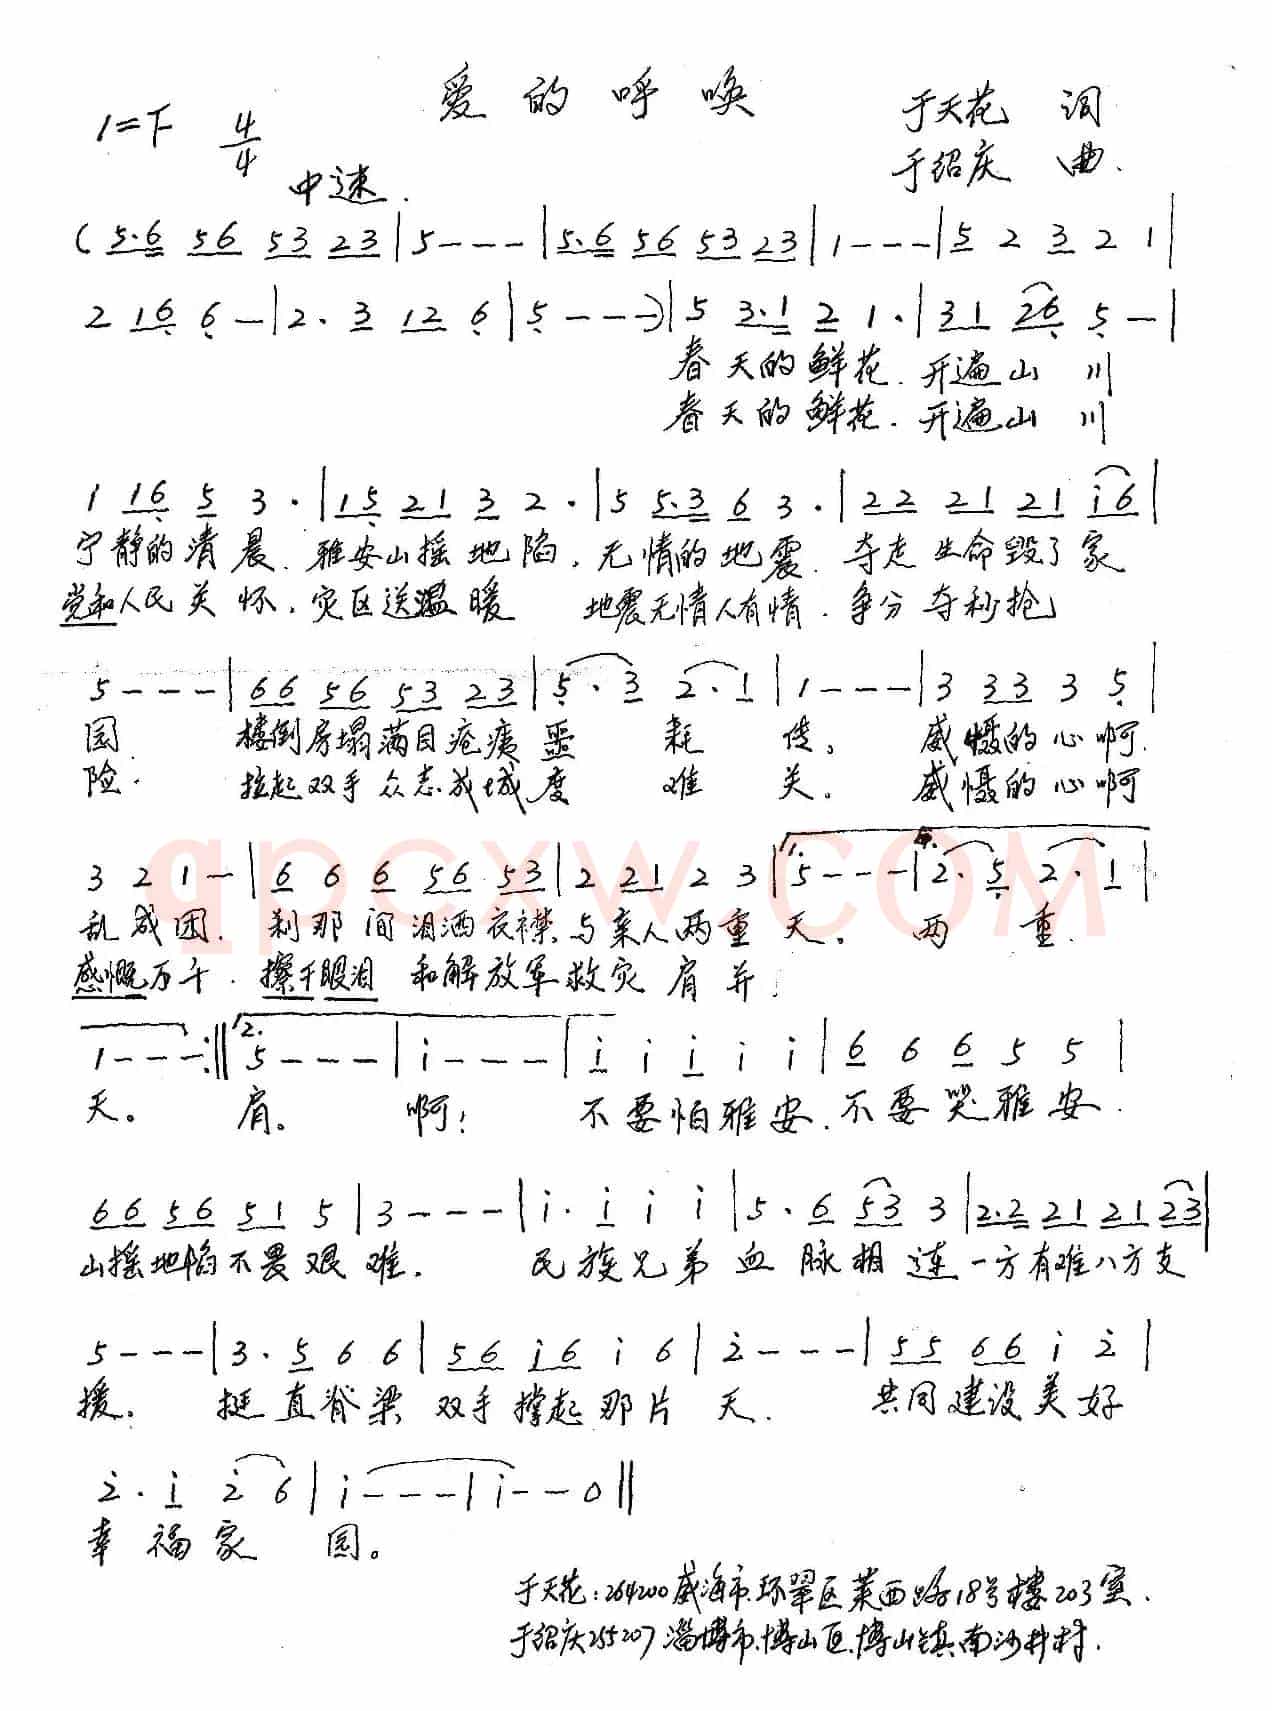 爱的呼唤
1=F 4/4 于天花 词
中速. 于绍庆 曲.
( 5·6 56 53 23 | 5 - - - | 5·6 56 53 23 | 1 - - - | 5 2 3 2 1 |
2 16 6 - | 2· 3 12 6 | 5 - - - ) | 5 3·1 2 1· | 31 26 5 - |
春天的鲜花. 开遍山川
春天的鲜花. 开遍山川
1 16 5 3· | 15 21 3 2· | 5 5·3 6 3· | 22 21 21 i6 |
宁静的清晨. 雅安山摇地陷, 无情的地震. 夺走生命毁了家
党和人民关怀, 灾区送温暖 地震无情人有情. 争分夺秒抢
5 - - - | 66 56 53 23 | 5· 3 2· 1 | 1 - - - | 3 33 3 5 |
园. 楼倒房塌满目疮痍噩耗传。 威慑的心啊.
险. 拉起双手众志成城度难关。 威慑的心啊
3 2 1 - | 6 6 6 56 53 | 2 21 2 3 | 1. 5 - - - | 2· 5 2· 1 |
乱成团. 刹那间泪洒衣襟与亲人两重天。 两重.
感慨万千. 擦干眼泪 和解放军救灾肩并
1 - - - :‖ 2. 5 - - - | i - - - | i i i i i | 6 6 6 5 5 |
天。 肩。 啊! 不要怕雅安. 不要哭雅安.
66 56 51 5 | 3 - - - | i· i i i | 5· 6 53 3 | 2·2 21 21 23 |
山摇地陷不畏艰难. 民族兄弟血脉相连一方有难八方支
5 - - - | 3· 5 6 6 | 56 i6 i 6 | 2 - - - | 55 66 i 2 |
援。 挺直脊梁 双手撑起那片天. 共同建设美好
2· i 2 6 | i - - - | i - - 0 ‖
幸福家园。
于天花:264200威海市.环翠区莱西路18号楼203室.
于绍庆255207淄博市.博山区.博山镇南沙井村.
qpcxw.com